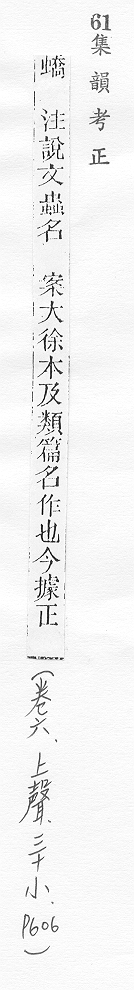 61集韻考正
蟜 注說文蟲名 案大徐本及類篇名作也今據正
(卷六、上聲、三十小、P606)